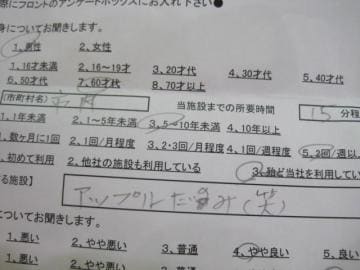 際にフロントのアンケートボックスにお入れ下さい●
身についてお聞きします。
1、男性 2、女性
1、16才未満 2、16～19才 3、20才代 4、30才代 5、40才代
6、50才代 7、60才代 8、70才以上
(市町村名) 市内 当施設までの所要時間 15 分程
1、1年未満 2、1～5年未満 3、5～10年未満 4、10年以上
1、数ヶ月に1回 2、1回/月程度 3、2・3回/月程度 4、1回/週程度 5、2回/週以
、初めて利用 2、他社の施設も利用している 3、殆ど当社を利用してい
る施設 アップルだすみ(笑)
についてお聞きします。
1、悪い 2、やや悪い 3、普通 4、やや良い 5、良い
1、悪い 2、やや悪い 3、普通 4、やや良い